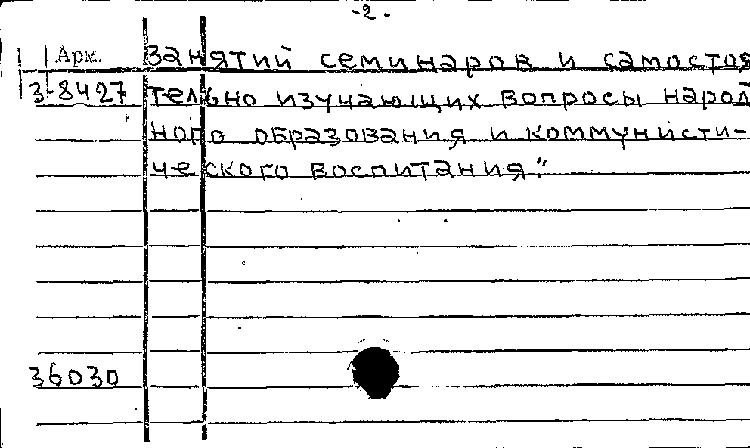 -2-
Арм. занятий семинаров и самостоя
3-8427 тельно изучающих вопросы народ
ного образования и коммунисти-
ческого воспитания."
36030